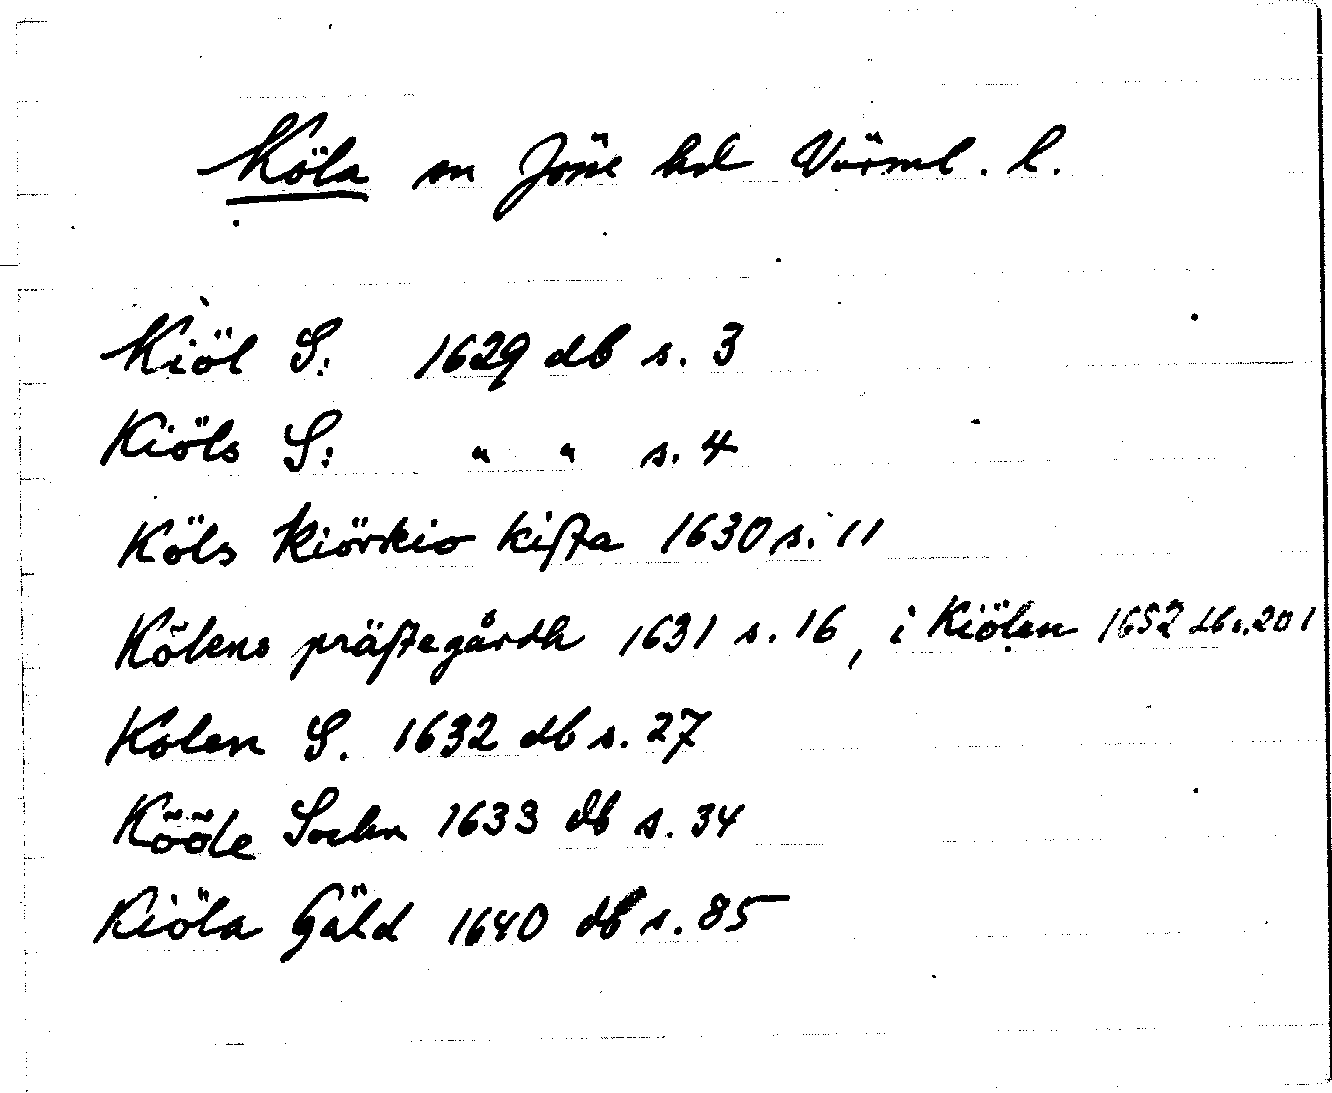 Köla sn Jösse hd Värml. l.
Kiöl S: 1629 db s. 3
Kiöls S: " " s. 4
Köls Kiörkio kista 1630 s. 11
Kölens prästegårdh 1631 s. 16, i Kiölen 1652 db s. 201
Kolen S. 1632 db s. 27
Kööle Sochn 1633 db s. 34
Kiöla Gäld 1640 db s. 85